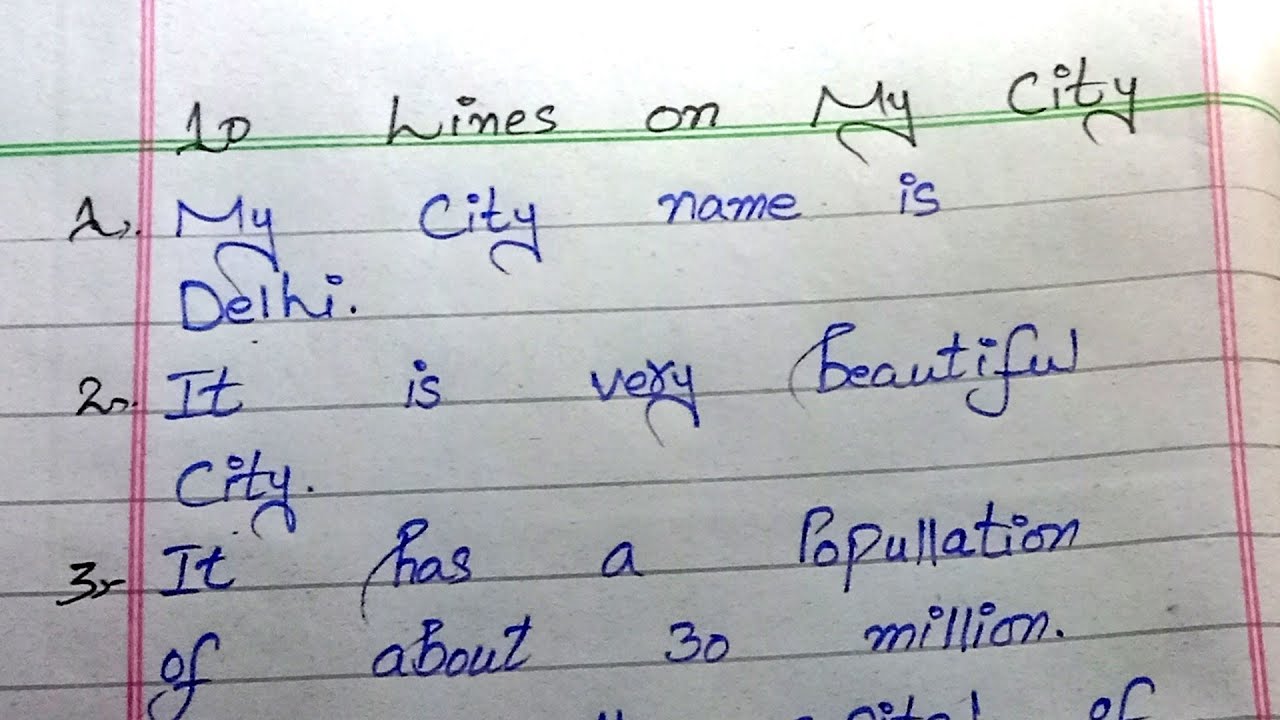 10 Lines on My City
1. My City name is
Delhi.
2. It is very beautiful
City.
3. It has a Popullation
of about 30 million.
of